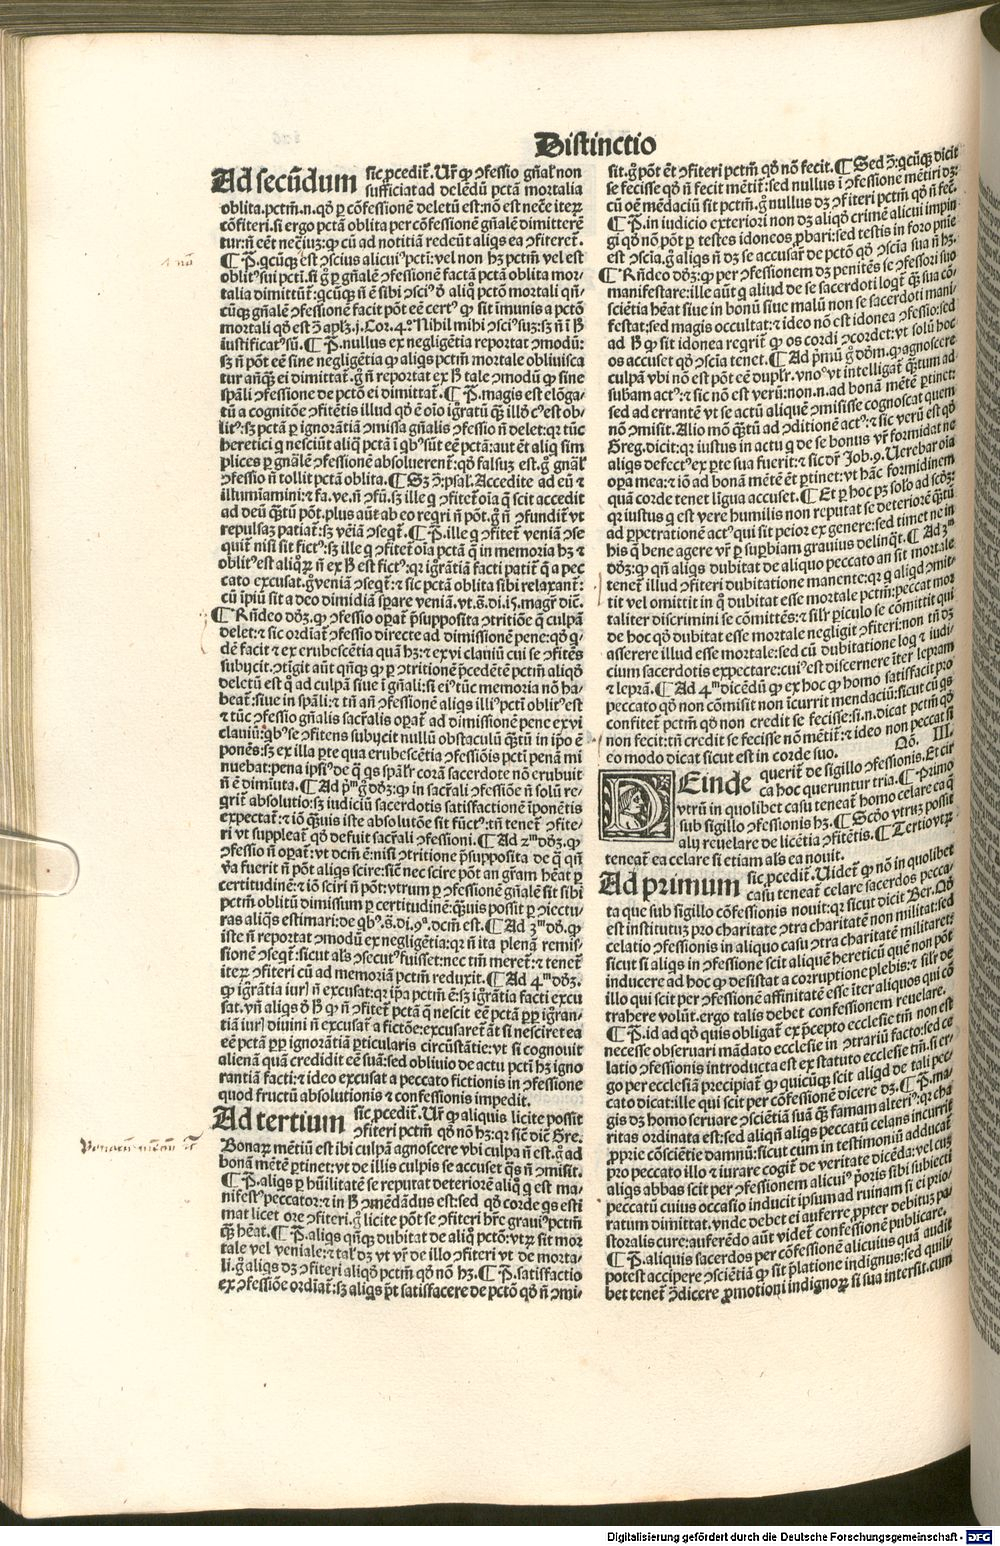 Distinctio
Ad secūdum sic ꝓcedit̄. Ur̄ ꝙ ↄfessio gn̄al' non
sufficiat ad delēdū pctā mortalia
oblita. pctm̄. n. qd̄ ꝑ cōfessionē deletū est: nō est nec̄e iteꝝ
cōfiteri. si ergo pctā oblita per cōfessionē gn̄alē dimitterē
tur: n̄ eēt nec̄iuz: ꝙ cū ad notitiā redeūt aliqs ea ↄfiteret̄.
oblit' sui pcti. si g̊ ꝑ gn̄alē ↄfessionē factā pctā oblita mor-
mortali qd̄ est ↄ̄ apl'z. j. Cor. 4. Nihil mihi ↄsci' suz: sz n̄ ī ɦ
iustificat' sū. ¶ P̄. nullus ex negligētia reportat ↄmodū:
sz n̄ pōt eē sine negligētia ꝙ aliqs pctm̄ mortale obliuisca
tur añq̄ꝫ ei dimittat̄. g̊ n̄ reportat ex ɦ tale ↄmodū ꝙ sine
sp̄ali ↄfessione de pctō ei dimittat̄. ¶ P̄. magis est elōga-
heretici q nesciūt aliq̄ pctā ī qb' sūt eē pctā: aut ēt aliq sim
plices ꝑ gn̄alē ↄfessionē absoluerent̄: qd̄ falsuz est. g̊ gn̄al'
ↄfessio n̄ tollit pctā oblita. ¶ Sz ↄ̄: psal'. Accedite ad eū ⁊
illumīamini: ⁊ fa. ve. n̄ ↄfū. sz ille q ↄfitet̄ oīa q̄ scit accedit
ad deū q̄ꝫtū pōt. plus aūt ab eo reqri n̄ pōt. g̊ n̄ ↄfundit̄ vt
repulsaz patiat̄: sz vēiā ↄseqt̄. ¶ P̄. ille q ↄfitet̄ veniā ↄse
quit̄ nisi sit fict': sz ille q ↄfitet̄ oīa pctā q̄ in memoria hz ⁊
cato excusat. g̊ veniā ↄseqt̄: ⁊ sic pctā oblita sibi relaxant̄:
cū īpiū sit a deo dimidiā sꝑare veniā. vt. s̄. di. 15. magr̄ dic̄.
¶ Rn̄deo dd̄z. ꝙ ↄfessio oꝑat̄ p̄supposita ↄtritiōe q̄ culpā
delet: ⁊ sic ordiat̄ ↄfessio directe ad dimissionē pene: qd̄ q̄-
dē facit ⁊ ex erubescētia quā hz: ⁊ ex vi clauiū cui se ↄfitēs
subijcit. ↄtigit aūt qñqꝫ ꝙ ꝑ ↄtritionē p̄cedētē pctm̄ aliqd̄
deletū est q̊ ad culpā siue ī gn̄ali: si ei' tūc memoria nō ha-
beat̄: siue in sp̄ali: ⁊ tn̄ añ ↄfessionē aliqs illi' pcti oblit' est
⁊ tūc ↄfessio gn̄alis sacr̄alis oꝑat̄ ad dimissionē pene ex vi
clauiū: qb' se ↄfitens subijcit nullū obstaculū q̄ꝫtū in ip̄o ē
ponēs: sz ex illa ꝑte qua erubescētia ↄfessiōis pcti penā mi
nuebat: pena ipsi' de q̄ qs sp̄al'r corā sacerdote nō erubuit
n̄ ē diminuta. ¶ Ad p̄m g̊ dd̄z: ꝙ in sacr̄ali ↄfessiōe n̄ solū re-
grit̄ absolutio: sz iudiciū sacerdotis satisfactionē īponētis
expectat̄: ⁊ iō q̄ꝫuis iste absolutōe sit fūct': tn̄ tenet̄ ↄfite-
ri vt suppleat̄ qd̄ defuit sacr̄ali ↄfessioni. ¶ Ad 2m dd̄z. ꝙ
ↄfessio n̄ oꝑat̄: vt dcm̄ ē: nisi ↄtritione p̄supposita de q̄ qñ
v̄a fuerit n̄ pōt aliqs scire: siē nec scire pōt an gr̄am hēat ꝑ
certitudinē: ⁊ iō sciri n̄ pōt: vtrum ꝑ ↄfessionē gn̄alē sit sibi
pctm̄ oblitū dimissum ꝑ certitudinē: q̄ꝫuis possit ꝑ ↄiectu-
ras aliq̄s estimari: de qb'. s̄. di. 9ª. dcm̄ est. ¶ Ad 3m dd̄. ꝙ
iste n̄ reportat ↄmodū ex negligētia: qr n̄ ita plenā remis-
sionē ↄseqt̄: sicut al's ↄsecut' fuisset: nec tm̄ meret̄: ⁊ tenet̄
iteꝝ ↄfiteri cū ad memoriā pctm̄ reduxit. ¶ Ad 4m dd̄z.
ꝙ igr̄atia iur̄ n̄ excusat: qr ip̄a pctm̄ ē: sz igr̄atia facti excu
tiā iur̄ diuini n̄ excusat̄ a fictōe: excusaret̄ āt si nesciret ea
eē pctā ꝓꝑ ignorātiā ꝑticularis circūstātie: vt si cognouit
alienā quā credidit eē suā: sed obliuio de actu pcti hz igno
rantiā facti: ⁊ ideo excusat a peccato fictionis in ↄfessione
quod fructū absolutionis ⁊ confessionis impedit.
Ad tertium sic ꝓcedit̄. Ur̄ ꝙ aliquis licite possit
ↄfiteri pctm̄ qd̄ nō hz: qr siē dic̄ Gre.
Bonaꝝ mētiū est ibi culpā agnoscere vbi culpa n̄ est. g̊ ad
bonā mentē ꝑtinet: vt de illis culpis se accuset q̄s n̄ ↄmisit.
¶ P̄. aliqs ꝑ hūilitatē se reputat deteriorē aliq̊ q est ma-
nifest' peccator: ⁊ in ɦ ↄmēdādus est: sed qd̄ corde qs esti
mat licet ore ↄfiteri. g̊ licite pōt se ↄfiteri hr̄e graui' pctm̄
q̄ꝫ hēat. ¶ P̄. aliqs qñqꝫ dubitat de aliq̊ pctō: vtꝝ sit mor
tale vel veniale: ⁊ tal' dz vt vr̄ de illo ↄfiteri vt de morta-
li. g̊ aliqs dz ↄfiteri aliqd̄ pctm̄ qd̄ nō hz. ¶ P̄. satisfactio
ex ↄfessiōe ordiat̄: sz aliqs p̄t satisfacere de pctō qd̄ n̄ ↄmi-
sit. g̊ pōt ēt ↄfiteri pctm̄ qd̄ nō fecit. ¶ Sed ↄ̄: qcūqꝫ dicit
se fecisse qd̄ n̄ fecit mētit̄: sed nullus ī ↄfessione mētiri dz:
cū oē mēdaciū sit pctm̄. g̊ nullus dz ↄfiteri pctm̄ qd̄ n̄ fec̄.
¶ P̄. in iudicio exteriori non dz aliqd̄ crimē alicui impin
gi qd̄ nō pōt ꝑ testes idoneos ꝓbari: sed testis in foro pnīe
est ↄsciētia. g̊ aliqs n̄ dz se accusar̄ de pctō qd̄ ↄscia sua n̄ hz.
¶ Rn̄deo dd̄z: ꝙ per ↄfessionem dz penitēs se ↄfessori suo
manifestare: ille aūt q aliud de se sacerdoti loqt̄ q̄ꝫ sua cō-
sciētia hēat siue in bonū siue malū non se sacerdoti mani
festat: sed magis occultat: ⁊ ideo nō est idonea ↄfessio: sed
ad ɦ ꝙ sit idonea reqrit̄ ꝙ os cordi ↄcordet: vt solū hoc
os accuset qd̄ ↄscia tenet. ¶ Ad p̄mū g̊ dd̄m. ꝙ agnoscere
culpā vbi nō est pōt eē dupl'r. vno° vt intelligat̄ q̄ꝫtum ad
subam act': ⁊ sic nō est verū: non. n. ad bonā mētē ꝑtinet:
sed ad errantē vt se actū aliquē ↄmisisse cognoscat quem
nō ↄmisit. Alio mō q̄ꝫtū ad ↄditionē act': ⁊ sic verū est qd̄
Greg. dicit: qr iustus in actu q de se bonus vr̄ formidat ne
aliqs defect' ex ꝑte sua fuerit: ⁊ sic dr̄ Job. 9. Uerebar oīa
oꝑa mea: ⁊ iō ad bonā mētē ēt ꝑtinet: vt hāc formidinem
quā corde tenet ligua accuset. ¶ Et ꝑ hoc pz solo ad scdz:
qr iustus q est vere humilis non reputat se deteriorē q̄ꝫtū
ad ꝑpetrationē act' qui sit peior ex genere: sed timet ne in
his q̄ bene agere vr̄ ꝑ suꝑbiam grauius delinqt̄. ¶ Ad 3m
dd̄z: ꝙ qñ aliqs dubitat de aliquo peccato an sit mortale
tenet̄ illud ↄfiteri dubitatione manente: qr q aliqd ↄmit-
tit vel omittit in q̊ dubitat esse mortale pctm̄: peccat mor
taliter discrimini se cōmittēs: ⁊ sil'r ꝑiculo se cōmittit qui
de hoc qd̄ dubitat esse mortale negligit ↄfiteri: non tn̄ dz
asserere illud esse mortale: sed cū dubitatione loq ⁊ iudi-
cium sacerdotis expectare: cui' est discernere īter lepram
⁊ leprā. ¶ Ad 4m dicēdū ꝙ ex hoc ꝙ homo satisfacit pro
peccato qd̄ non cōmisit non īcurrit mendaciū: sicut cū qs
confitet̄ pctm̄ qd̄ non credit se fecisse: si. n. dicat pctm̄ qd̄
non fecit: tn̄ credit se fecisse nō mētit̄: ⁊ ideo non peccat si
eo modo dicat sicut est in corde suo. Qō. III.
DEinde querit̄ de sigillo ↄfessionis. Et cir
ca hoc queruntur tria. ¶ Primo
vtrū in quolibet casu teneat̄ homo celare ea q̄
sub sigillo ↄfessionis hz. ¶ Scdo vtruz possit
alij reuelare de licētia ↄfitētis. ¶ Tertio vtꝝ
teneat̄ ea celare si etiam al's ea nouit.
Ad primum sic ꝓcedit̄. Uidet̄ ꝙ nō in quolibet
casu teneat̄ celare sacerdos pecca-
ta que sub sigillo cōfessionis nouit: qr sicut dicit Ber. Qd̄
est institutuz pro charitate ↄtra charitatē non militat: sed
celatio ↄfessionis in aliquo casu ↄtra charitatē militaret:
sicut si aliqs in ↄfessione scit aliquē hereticū quē non pōt
inducere ad hoc ꝙ desistat a corruptione plebis: ⁊ sil'r de
illo qui scit per ↄfessionē affinitatē esse iter aliquos qui cō
trahere volūt. ergo talis debet confessionem reuelare.
¶ P̄. id ad qd̄ quis obligat̄ ex p̄cepto ecclesie tm̄ non est
necesse obseruari mādato ecclesie in ↄtrariū facto: sed ce
latio ↄfessionis introducta est ex statuto ecclesie tm̄. si er-
go per ecclesiā precipiat̄ ꝙ quicūqꝫ scit aliqd de tali pec-
cato dicat: ille qui scit per cōfessionē dicere dz. ¶ P̄. ma-
gis dz homo seruare ↄsciētiā suā q̄ꝫ famam alteri': qr cha
ritas ordinata est: sed aliqñ aliqs peccatū celans incurrit
ꝓprie cōscientie damnū: sicut cum in testimoniū adducat̄
pro peccato illo ⁊ iurare cogit̄ de veritate dicēda: vel cuz
aliqs abbas scit per ↄfessionem alicui' prioris sibi subiecti
peccatū cuius occasio inducit ipsum ad ruinam si ei prio-
ratum dimittat. vnde debet ei auferre ꝓpter debituz pa-
storalis cure: auferēdo aūt videt̄ confessionē publicare.
¶ P̄. aliquis sacerdos per cōfessionē alicuius quā audit
potest accipere ↄsciētiā ꝙ sit p̄latione indignus: sed quili-
bet tenet̄ ↄ̄dicere ꝓmotioni indignoꝝ si sua intersit. cum
Digitalisierung gefördert durch die Deutsche Forschungsgemeinschaft - DFG